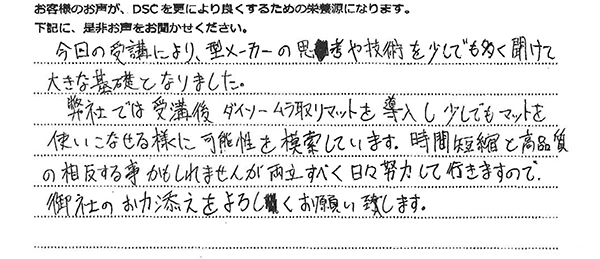 お客様のお声が、DSCを更により良くするための栄養源になります。
下記に、是非お声をお聞かせください。
今回の受講により、型メーカーの思考や技術を少しでも多く聞けて
大きな基礎となりました。
弊社では受講後 ダイソームラ取りマットを導入し少しでもマットを
使いこなせる様に可能性を模索しています。時間短縮と高品質
の相反する事かもしれませんが両立すべく日々努力して行きますので、
御社のお力添えをよろしくお願い致します。